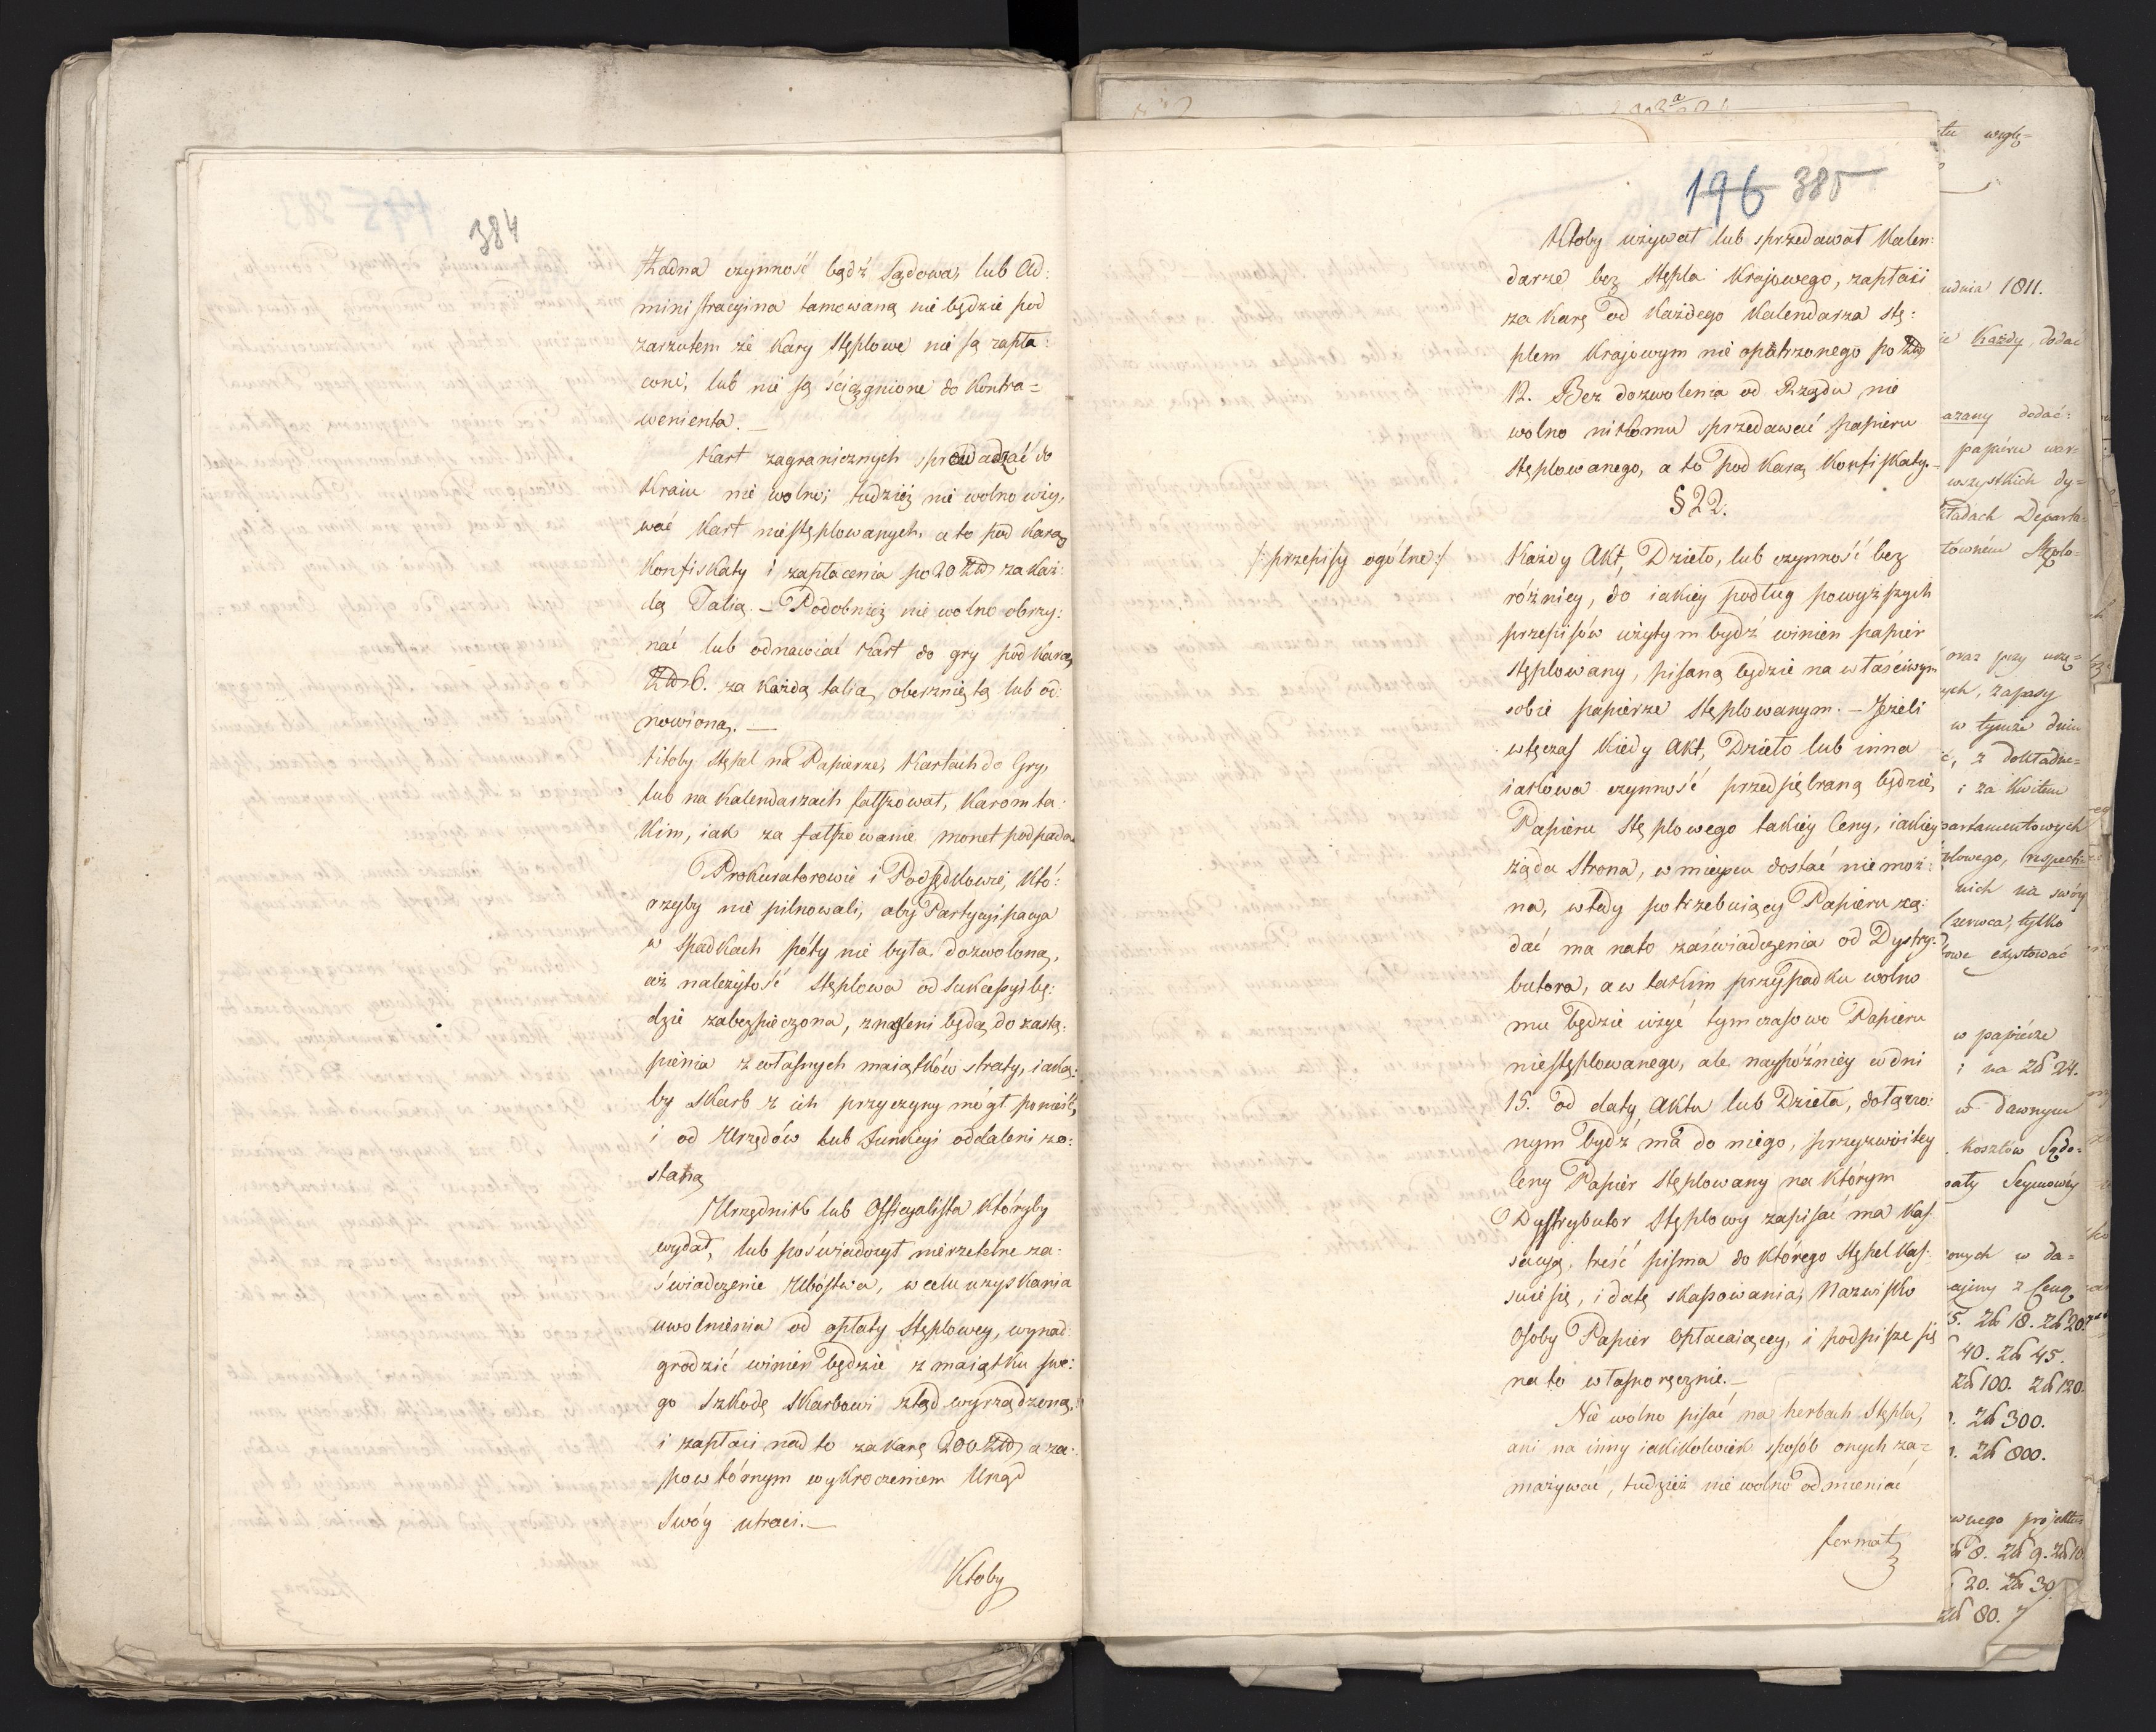 384
Żadna czynność bądź Sądowa, lub Ad:
ministracyina tamowaną nie będzie pod
zarzutem że kary Stęplowe nie są zapła:
cone, lub nie są ściągnione do Kontra=
wenienta. —
Kart zagranicznych sprowadzać do
Kraiu nie wolno; tudzież nie wolno uży,
wać Kart niestęplowanych, a to pod karą
Konfiskaty i zapłacenia po 20 Złł za każ:
dą Talią. — Podobnież nie wolno obrzy:
nać lub odnawiać Kart do gry pod karą
Złł 6. za każdą talią oberzniętą lub od:
nowioną. —
Ktoby Stępel na Papierze, Kartach do Gry,
lub na Kalendarzach fałszował, karom ta:
kim, iak za fałszowanie monet podpada
Prokuratorowie i Podsędkowie, któ:
rzyby nie pilnowali, aby Partycypacya
w spadkach póty nie była dozwoloną,
aż należytość Stęplowa od Sukcessyi bę:
dzie zabezpieczona, znagleni będą do zastą:
pienia z własnych maiątków straty, iaką:
by Skarb z ich przyczyny mógł ponieść,
i od Urzędów lub Funkcyi oddaleni zo:
staną
Urzędnik lub Officyalista któryby
wydał, lub poświadczył nierzetelne za:
świadczenie Ubóstwa, w celu uzyskania
uwolnienia od opłaty Stęplowey, wynad:
grodzić winien będzie z maiątku swe:
go Szkodę Skarbowi ztąd wyrządzoną,
i zapłaci nad to za karę 200 Złł, a za
powtórnym wykroczeniem Urząd
swóy utraci. —
Ktoby
196 385
Ktoby używał lub sprzedawał Kalen:
darze bez Stępla Krajowego, zapłaci
za karę od każdego Kalendarza stę:
plem Krajowym nie opatrzonego po Złł
12. Bez dozwolenia od Rządu nie
wolno nikomu sprzedawać papieru
stęplowanego, a to pod karą Konfiskaty. —
§ 22.
/: przepisy ogólne :/
Każdy Akt, Dzieło, lub czynność bez
różnicy, do iakiey podług powyższych
przepisów użytym bydź winien papier
stęplowany, pisaną będzie na właściwym
sobie papierze Stęplowanym. — Jeżeli
wtęczas kiedy Akt, Dzieło lub inna
iakowa czynność przedsiębraną będzie,
Papieru Stęplowego takiéy Ceny, iakiey
żąda Strona, w mieyscu dostać nie moż:
na, wtedy potrzebuiący Papieru żą:
dać ma nato zaświadczenia od Dystry:
butora, a w takim przypadku wolno
mu będzie użyć tymczasowo Papieru
niestęplowanego, ale naypóźniéy w dni
15. od daty Aktu lub Dzieła, dołączo:
nym bydź ma do niego, przyzwoitey
Ceny Papiér Stęplowany na którym
Dystrybutor Stęplowy zapisać ma Kas:
sacyą, treść pisma do którego Stępel kas:
suie się, i datę skassowania, Nazwisko
Osoby Papier Opłacaiącey, i podpisze się
na to własnoręcznie. —
Nie wolno pisać na herbach Stępla,
ani na inny iakikolwiek sposób onych za=
mazywać, tudzież nie wolno odmieniać
format
tu wzglę=
udnia 1811.
każdy, dodać
dodać:
papiéru war:
wszystkich dy=
Departa=
oraz przy
zapasy
w tymże dniu
z dokładne=
i za kwitem
partamentowych
respecti=
nich na swóy
Czerwca, tylko
exystować
w papiérze
i na Zł 24.
w dawnym
kosztów Sądo=
Seymowéy
onych w da=
z Ceną
5. Zł 18. Zł 20.
40. Zł 45.
Zł 100. Zł 120.
Zł 300.
Zł 800.
projektu
8. Zł 9. Zł 10
20. Zł 30.
Zł 80.